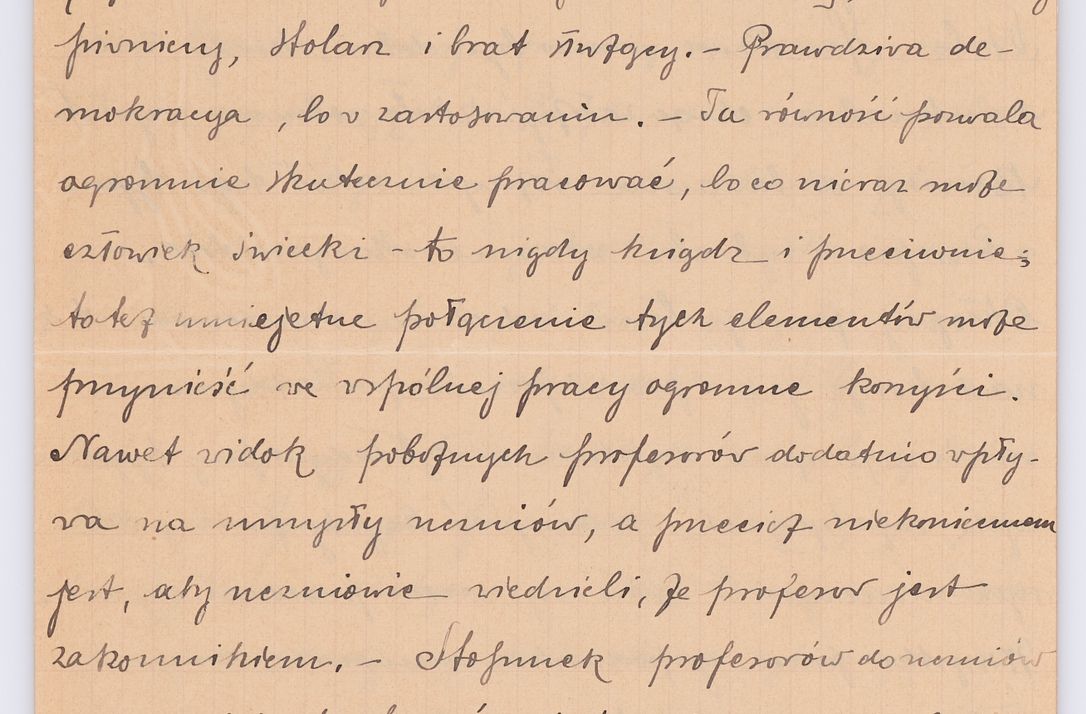 piwniczy, stolarz i brat służący. – Prawdziwa de-
mokracya, bo w zastosowaniu. – Ta równość pozwala
ogromnie skutecznie pracować, bo co nieraz może
człowiek świecki – to nigdy ksiądz i przeciwnie;
toteż umiejętne połączenie tych elementów może
przynieść we wspólnej pracy ogromne korzyści.
Nawet widok pobożnych profesorów dodatnio wpły-
wa na umysły uczniów, a przecież niekoniecznem
jest, aby uczniowie wiedzieli, że profesor jest
zakonnikiem. – Stosunek profesorów do uczniów